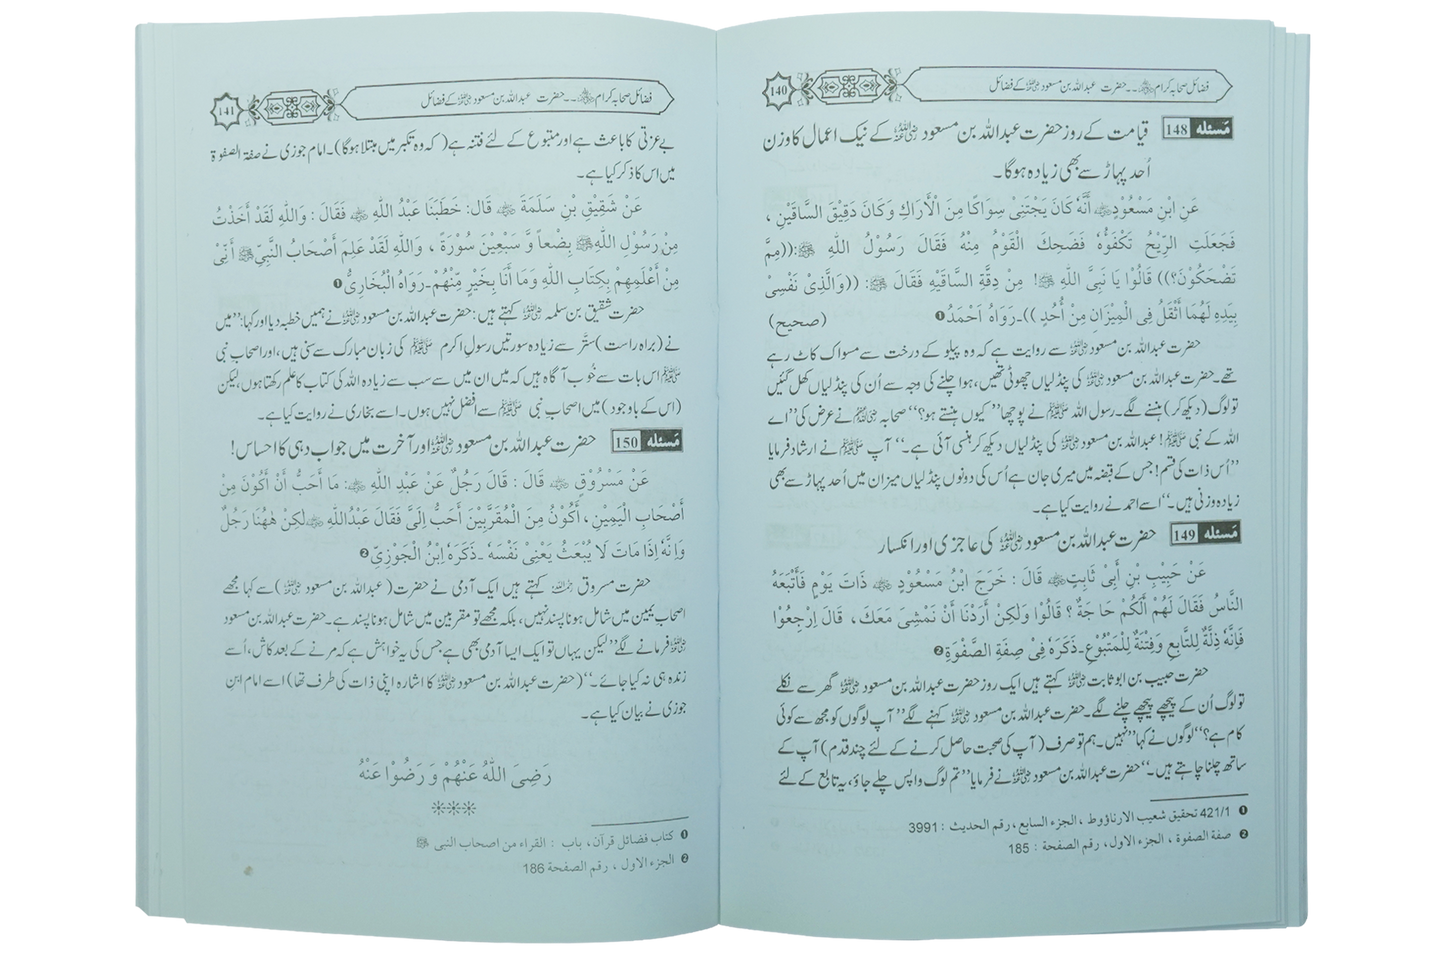 140 فضائل صحابہ کرام ﷢۔۔حضرت عبداللہ بن مسعود ﷜ کے فضائل
مَسئله 148 قیامت کے روز حضرت عبداللہ بن مسعود ﷜ کے نیک اعمال کا وزن
اُحد پہاڑ سے بھی زیادہ ہوگا۔
عَنِ ابْنِ مَسْعُوْدٍ ﷜ أَنَّهٗ كَانَ يَجْتَنِىْ سِوَاكًا مِنَ الْأَرَاكِ وَكَانَ دَقِيْقَ السَّاقَيْنِ ،
فَجَعَلَتِ الرِّيْحُ تَكْفَؤُهٗ فَضَحِكَ الْقَوْمُ مِنْهُ فَقَالَ رَسُوْلُ اللهِ ﷺ:((مِمَّ
تَضْحَكُوْنَ؟)) قَالُوْا يَا نَبِىَّ اللهِ ﷺ! مِنْ دِقَّةِ السَّاقَيْهِ فَقَالَ ﷺ: ((وَالَّذِىْ نَفْسِىْ
بِيَدِهٖ لَهُمَا أَثْقَلُ فِى الْمِيْزَانِ مِنْ أُحُدٍ ))۔رَوَاهُ أَحْمَدُ❶ (صحيح)
حضرت عبداللہ بن مسعود ﷜ سے روایت ہے کہ وہ پیلو کے درخت سے مسواک کاٹ رہے
تھے۔ حضرت عبداللہ بن مسعود ﷜ کی پنڈلیاں چھوٹی تھیں، ہوا چلنے کی وجہ سے اُن کی پنڈلیاں کھل گئیں
تو لوگ (دیکھ کر) ہنسنے لگے۔ رسول اللہ ﷺ نے پوچھا ’’کیوں ہنستے ہو؟‘‘ صحابہ ﷢ نے عرض کی ’’اے
اللہ کے نبی ﷺ! عبداللہ بن مسعود ﷜ کی پنڈلیاں دیکھ کر ہنسی آئی ہے۔‘‘ آپ ﷺ نے ارشاد فرمایا
’’اُس ذات کی قسم! جس کے قبضہ میں میری جان ہے اُس کی دونوں پنڈلیاں میزان میں اُحد پہاڑ سے بھی
زیادہ وزنی ہیں۔‘‘ اسے احمد نے روایت کیا ہے۔
مَسئله 149 حضرت عبداللہ بن مسعود ﷜ کی عاجزی اور انکسار
عَنْ حَبِيْبِ بْنِ أَبِىْ ثَابِتٍ ﷜ قَالَ : خَرَجَ ابْنُ مَسْعُوْدٍ ﷜ ذَاتَ يَوْمٍ فَأَتْبَعَهُ
النَّاسُ فَقَالَ لَهُمْ أَلَكُمْ حَاجَةٌ ؟ قَالُوْا وَلٰكِنْ أَرَدْنَا أَنْ نَمْشِىَ مَعَكَ ، قَالَ اِرْجِعُوْا
فَاِنَّهٗ ذِلَّةٌ لِلتَّابِعِ وَفِتْنَةٌ لِلْمَتْبُوْعِ۔ذَكَرَهٗ فِىْ صِفَةِ الصَّفْوَةِ❷
حضرت حبیب بن ابو ثابت ﷜ کہتے ہیں ایک روز حضرت عبداللہ بن مسعود ﷜ گھر سے نکلے
تو لوگ اُن کے پیچھے پیچھے چلنے لگے۔ حضرت عبداللہ بن مسعود ﷜ کہنے لگے ’’آپ لوگوں کو مجھ سے کوئی
کام ہے؟‘‘ لوگوں نے کہا ’’نہیں۔ ہم تو صرف (آپ کی صحبت حاصل کرنے کے لئے چند قدم) آپ کے
ساتھ چلنا چاہتے ہیں۔‘‘ حضرت عبداللہ بن مسعود ﷜ نے فرمایا ’’تم لوگ واپس چلے جاؤ، یہ تابع کے لئے
❶ 421/1 تحقیق شعیب الارناؤوط ، الجزء السابع ، رقم الحدیث : 3991
❷ صفة الصفوة ، الجزء الاول ، رقم الصفحة : 185
141 فضائل صحابہ کرام ﷢۔۔حضرت عبداللہ بن مسعود ﷜ کے فضائل
بے عزتی کا باعث ہے اور متبوع کے لئے فتنہ ہے (کہ وہ تکبر میں مبتلا ہوگا)۔ امام جوزی نے صفۃ الصفوۃ
میں اس کا ذکر کیا ہے۔
عَنْ شَقِيْقِ بْنِ سَلَمَةَ ﷜ قَالَ: خَطَبَنَا عَبْدُ اللهِ ﷜ فَقَالَ : وَاللهِ لَقَدْ أَخَذْتُ
مِنْ رَسُوْلِ اللهِ ﷺ بِضْعاً وَّ سَبْعِيْنَ سُوْرَةً ، وَاللهِ لَقَدْ عَلِمَ أَصْحَابُ النَّبِىِّ ﷺ أَنِّىْ
مِنْ أَعْلَمِهِمْ بِكِتَابِ اللهِ وَمَا أَنَا بِخَيْرٍ مِّنْهُمْ۔رَوَاهُ الْبُخَارِىُّ❶
حضرت شقیق بن سلمہ ﷜ کہتے ہیں: حضرت عبداللہ بن مسعود ﷜ نے ہمیں خطبہ دیا اور کہا: ’’میں
نے (براہ راست) ستّر سے زیادہ سورتیں رسول اکرم ﷺ کی زبان مبارک سے سنی ہیں، اور اصحاب نبی
ﷺ اس بات سے خوب آگاہ ہیں کہ میں ان میں سے سب سے زیادہ اللہ کی کتاب کا علم رکھتا ہوں، لیکن
(اس کے باوجود) میں اصحاب نبی ﷺ سے افضل نہیں ہوں۔ اسے بخاری نے روایت کیا ہے۔
مَسئله 150 حضرت عبداللہ بن مسعود ﷜ اور آخرت میں جواب دہی کا احساس!
عَنْ مَسْرُوْقٍ ﷫ قَالَ : قَالَ رَجُلٌ عَنْ عَبْدِ اللهِ ﷜: مَا أُحِبُّ أَنْ أَكُوْنَ مِنْ
أَصْحَابِ الْيَمِيْنِ ، أَكُوْنُ مِنَ الْمُقَرَّبِيْنَ أَحَبُّ اِلَىَّ فَقَالَ عَبْدُاللهِ ﷜ لٰكِنْ هٰهُنَا رَجُلٌ
وَاِنَّهٗ اِذَا مَاتَ لَا يُبْعَثُ يَعْنِىْ نَفْسَهٗ ۔ذَكَرَهٗ اِبْنُ الْجَوْزِىِّ❷
حضرت مسروق ﷫ کہتے ہیں ایک آدمی نے حضرت (عبداللہ بن مسعود ﷜) سے کہا مجھے
اصحاب یمین میں شامل ہونا پسند نہیں، بلکہ مجھے تو مقربین میں شامل ہونا پسند ہے۔ حضرت عبداللہ بن مسعود
﷜ فرمانے لگے ’’لیکن یہاں تو ایک ایسا آدمی بھی ہے جس کی یہ خواہش ہے کہ مرنے کے بعد کاش، اُسے
زندہ ہی نہ کیا جائے۔‘‘ (حضرت عبداللہ بن مسعود ﷜ کا اشارہ اپنی ذات کی طرف تھا) اسے امام ابن
جوزی نے بیان کیا ہے۔
رَضِىَ اللهُ عَنْهُمْ وَ رَضُوْا عَنْهُ
***
❶ کتاب فضائل قرآن ، باب : القراء من اصحاب النبی ﷺ
❷ الجزء الاول ، رقم الصفحة 186